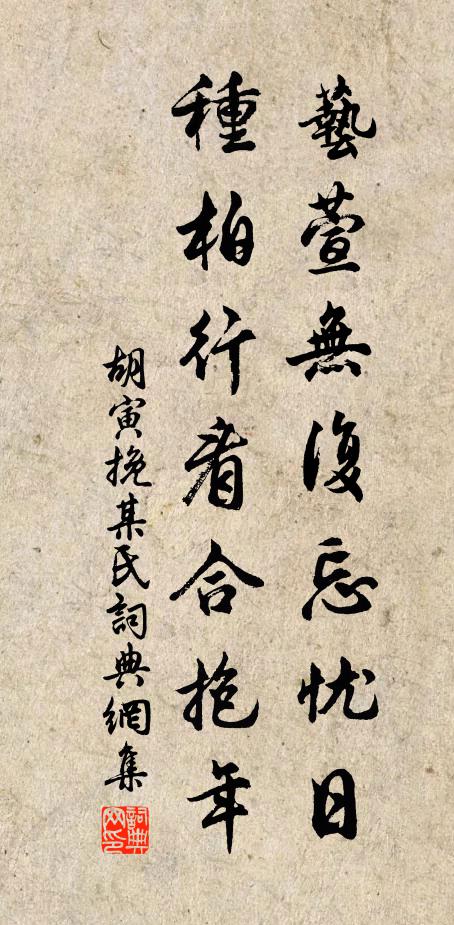 藝萱無復忘忧日
種柏行看合抱年
胡寅挽某氏詞典網集
詞典網印